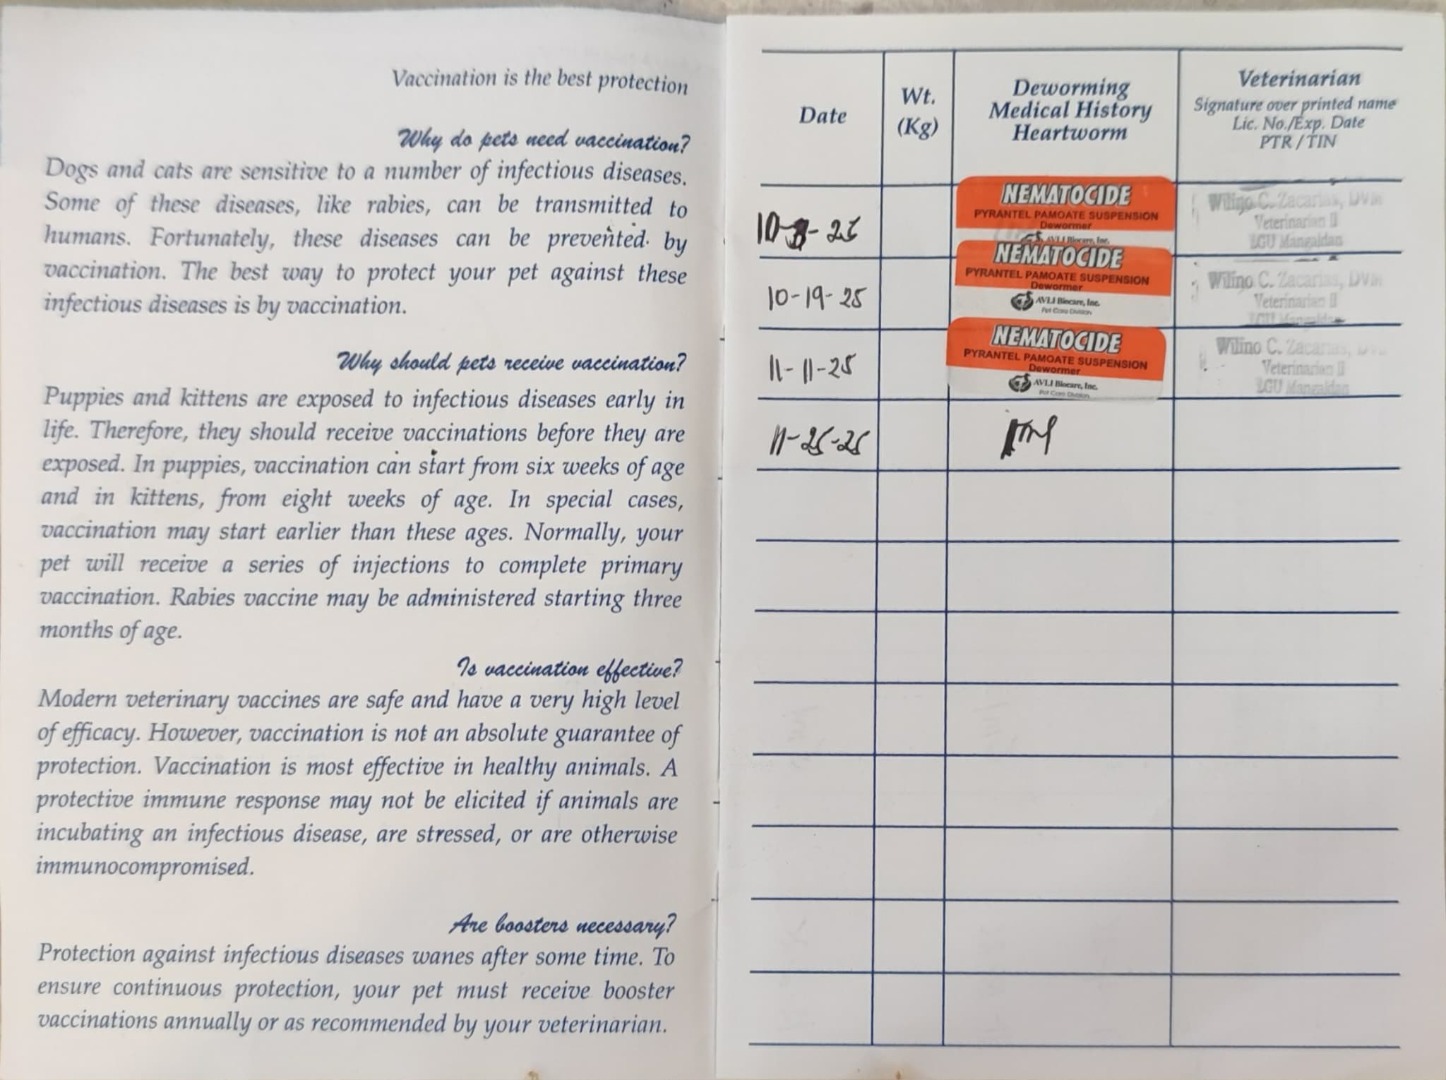 Vaccination is the best protection
Why do pets need vaccination?
Dogs and cats are sensitive to a number of infectious diseases.
Some of these diseases, like rabies, can be transmitted to
humans. Fortunately, these diseases can be prevented by
vaccination. The best way to protect your pet against these
infectious diseases is by vaccination.
Why should pets receive vaccination?
Puppies and kittens are exposed to infectious diseases early in
life. Therefore, they should receive vaccinations before they are
exposed. In puppies, vaccination can start from six weeks of age
and in kittens, from eight weeks of age. In special cases,
vaccination may start earlier than these ages. Normally, your
pet will receive a series of injections to complete primary
vaccination. Rabies vaccine may be administered starting three
months of age.
Is vaccination effective?
Modern veterinary vaccines are safe and have a very high level
of efficacy. However, vaccination is not an absolute guarantee of
protection. Vaccination is most effective in healthy animals. A
protective immune response may not be elicited if animals are
incubating an infectious disease, are stressed, or are otherwise
immunocompromised.
Are boosters necessary?
Protection against infectious diseases wanes after some time. To
ensure continuous protection, your pet must receive booster
vaccinations annually or as recommended by your veterinarian.
Date
Wt.
(Kg)
Deworming
Medical History
Heartworm
Veterinarian
Signature over printed name
Lic. No./Exp. Date
PTR / TIN
NEMATOCIDE
PYRANTEL PAMOATE SUSPENSION
Dewormer
AVLI Biocare, Inc.
Wilino C. Zacarias, DVM
Veterinarian II
LGU Mangaldan
10-19-25
NEMATOCIDE
PYRANTEL PAMOATE SUSPENSION
Dewormer
AVLI Biocare, Inc.
Pet Care Division
Wilino C. Zacarias, DVM
Veterinarian II
LGU Mangaldan
11-11-25
NEMATOCIDE
PYRANTEL PAMOATE SUSPENSION
Dewormer
AVLI Biocare, Inc.
Pet Care Division
Wilino C. Zacarias, DVM
Veterinarian II
LGU Mangaldan
11-25-25